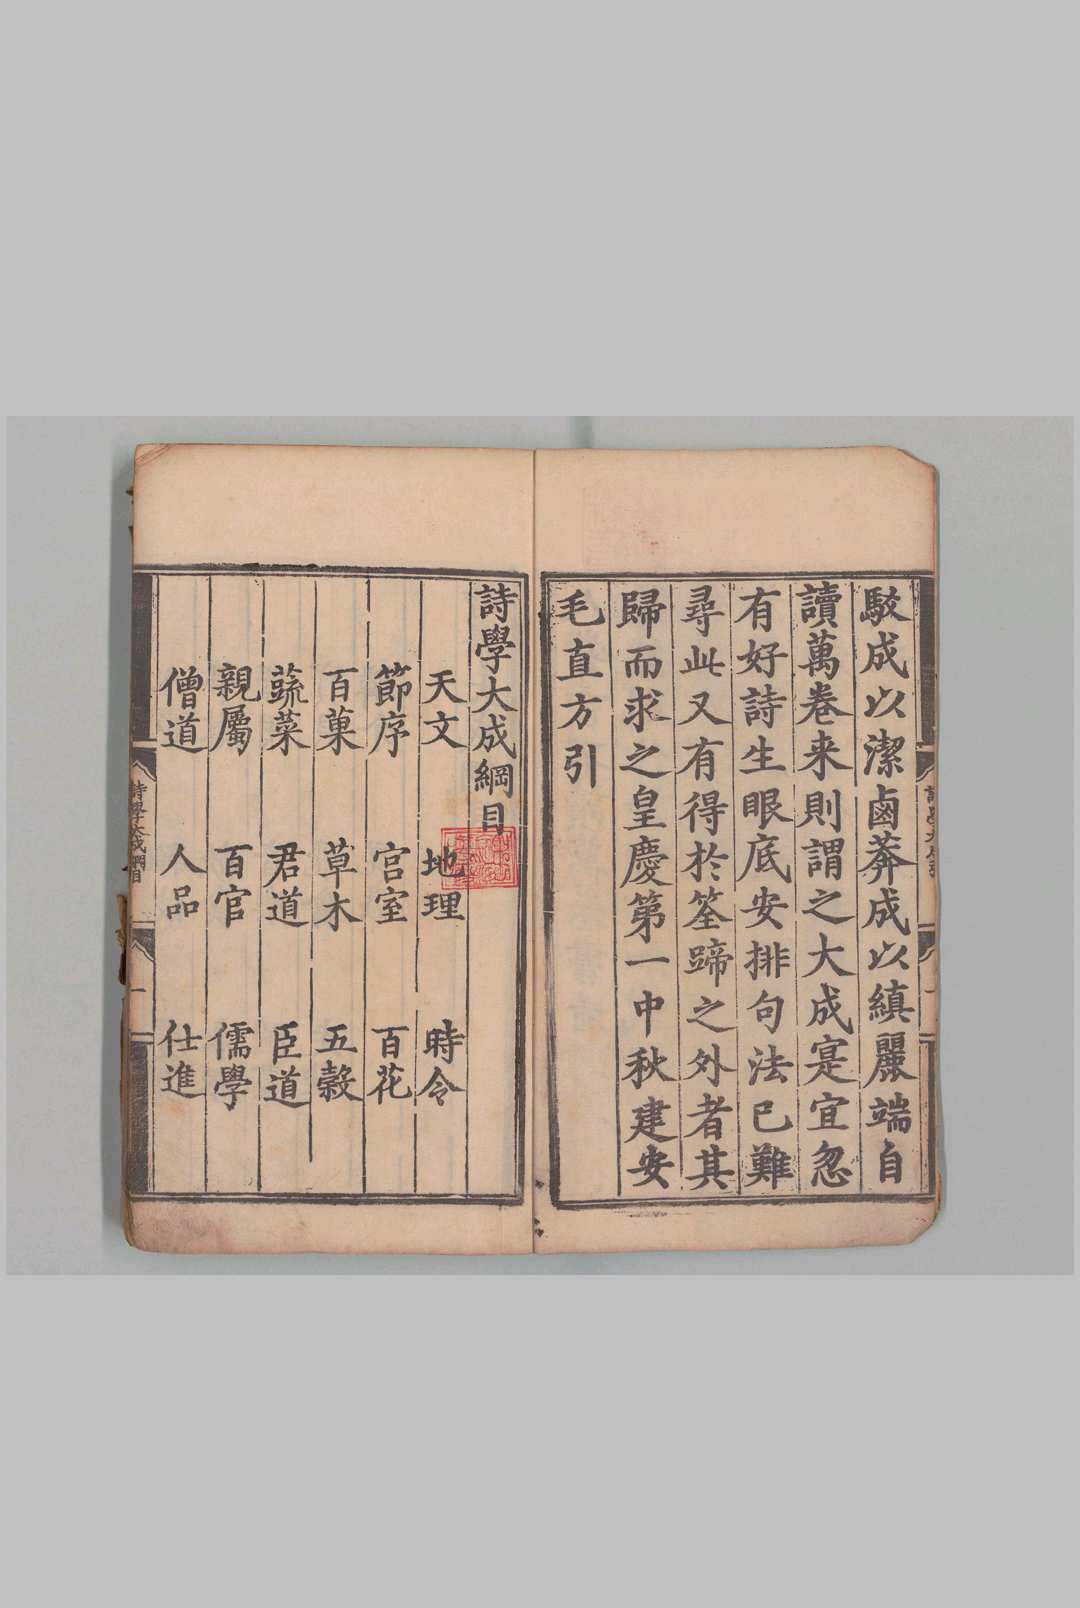 駁成以潔鹵莽成以縝麗端自
讀萬卷来則謂之大成寔宜忽
有好詩生眼底安排句法已難
尋此又有得於筌蹄之外者其
歸而求之皇慶第一中秋建安
毛直方引
詩學大成綱目
天文 地理 時令
節序 宮室 百花
百菓 草木 五穀
蔬菜 君道 臣道
親屬 百官 儒學
僧道 人品 仕進
詩學大成綱目 一